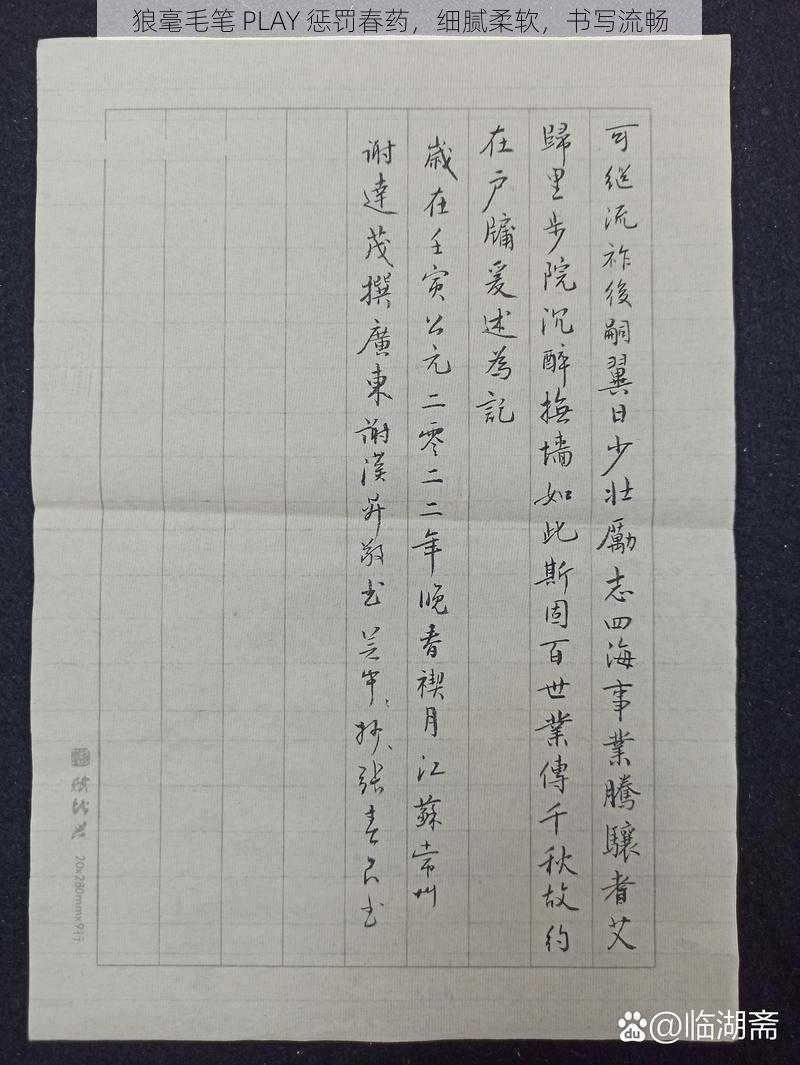 狼毫毛笔 PLAY 惩罚春药，细腻柔软，书写流畅
可继流祚後嗣翼日少壮勵志四海事業騰驤耆艾
歸里步院沉醉撫墙如此斯固百世業傳千秋故約
在户牖爰述為記
歲在壬寅公元二零二二年晚春禊月江蘇常州
谢達茂撰廣東谢漢昇敬书 抄 张春 书
20x280mmx9行
du @临湖斋